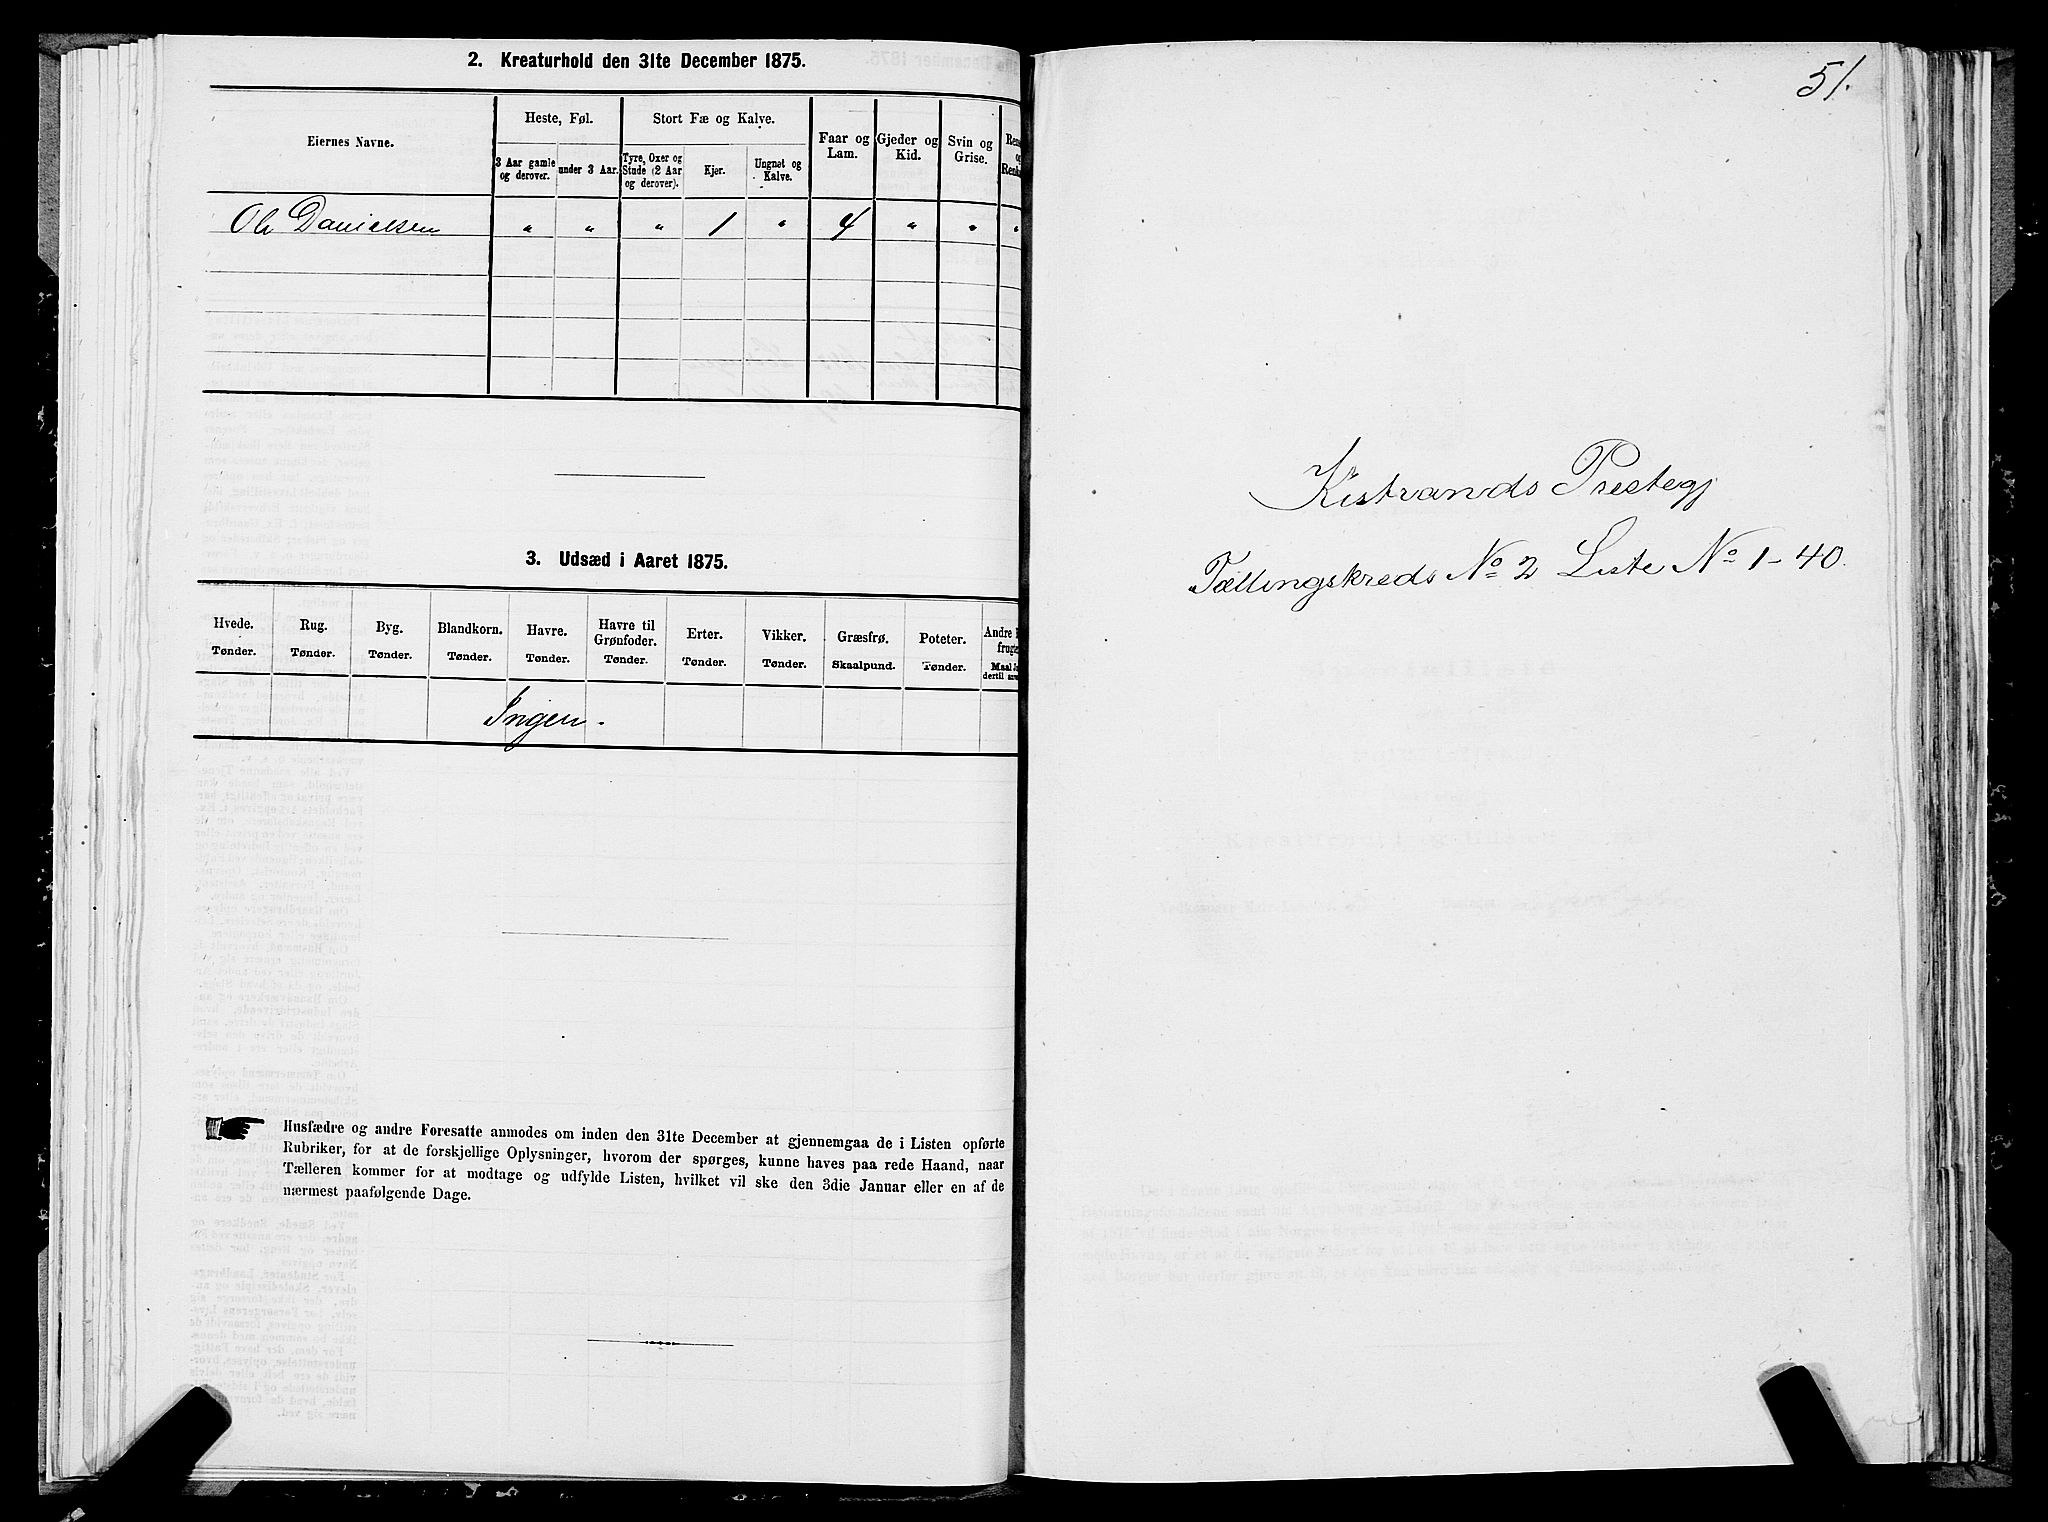 2. Kreaturhold den 31te December 1875.
Eiernes Navne.
Heste, Føl.
3 Aar gamle og derover.
under 3 Aar.
Stort Fæ og Kalve.
Tyre, Oxer og Stude (2 Aar og derover).
Kjer.
Ungnøt og Kalve.
Faar og Lam.
Gjeder og Kid.
Svin og Grise.
Ole Danielsen " " " 1 " 4 " " "
3. Udsæd i Aaret 1875.
Hvede. Rug. Byg. Blandkorn. Havre. Havre til Grønfoder. Erter. Vikker. Græsfrø. Poteter. Andre
Tønder. Tønder. Tønder. Tønder. Tønder. Tønder. Tønder. Tønder. Skaalpund. Tønder.
Ingen.
Husfædre og andre Foresatte anmodes om inden den 31te December at gjennemgaa de i Listen opførte
Rubriker, for at de forskjellige Oplysninger, hvorom der spørges, kunne haves paa rede Haand, naar
Tælleren kommer for at modtage og udfylde Listen, hvilket vil ske den 3die Januar eller en af de
nærmest paafølgende Dage.
51.
Kistrands Prestegj
Tællingskreds No 2 Liste No 1-40.